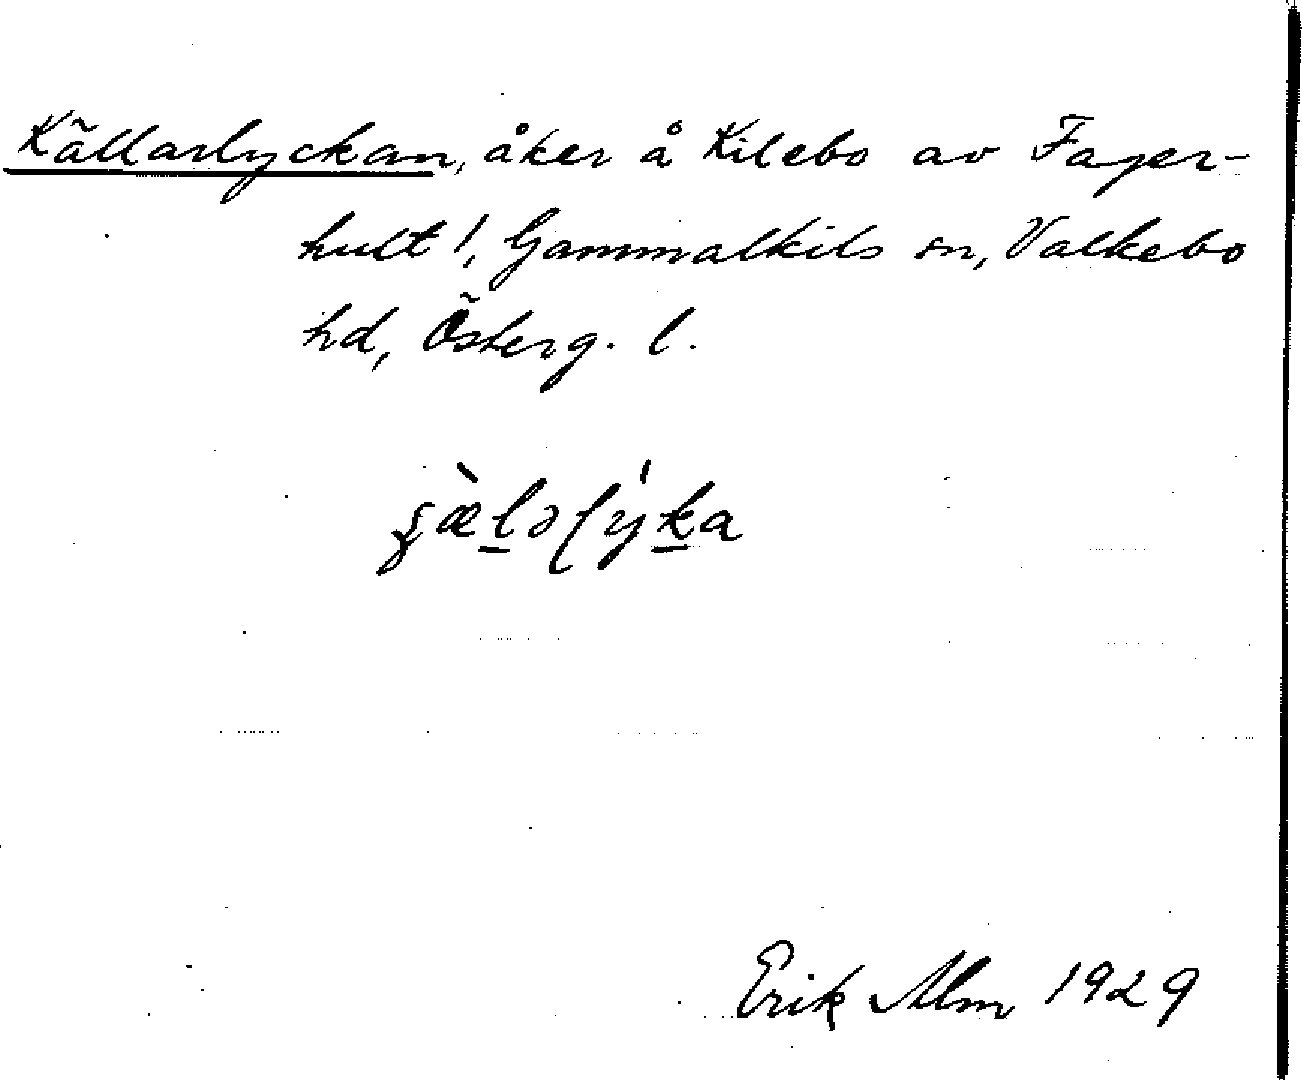 Källarlyckan, åker å Kilebo av Fager-
hult !, Gammalkils sn, Valkebo
hd, Österg. l.
Erik Alm 1929